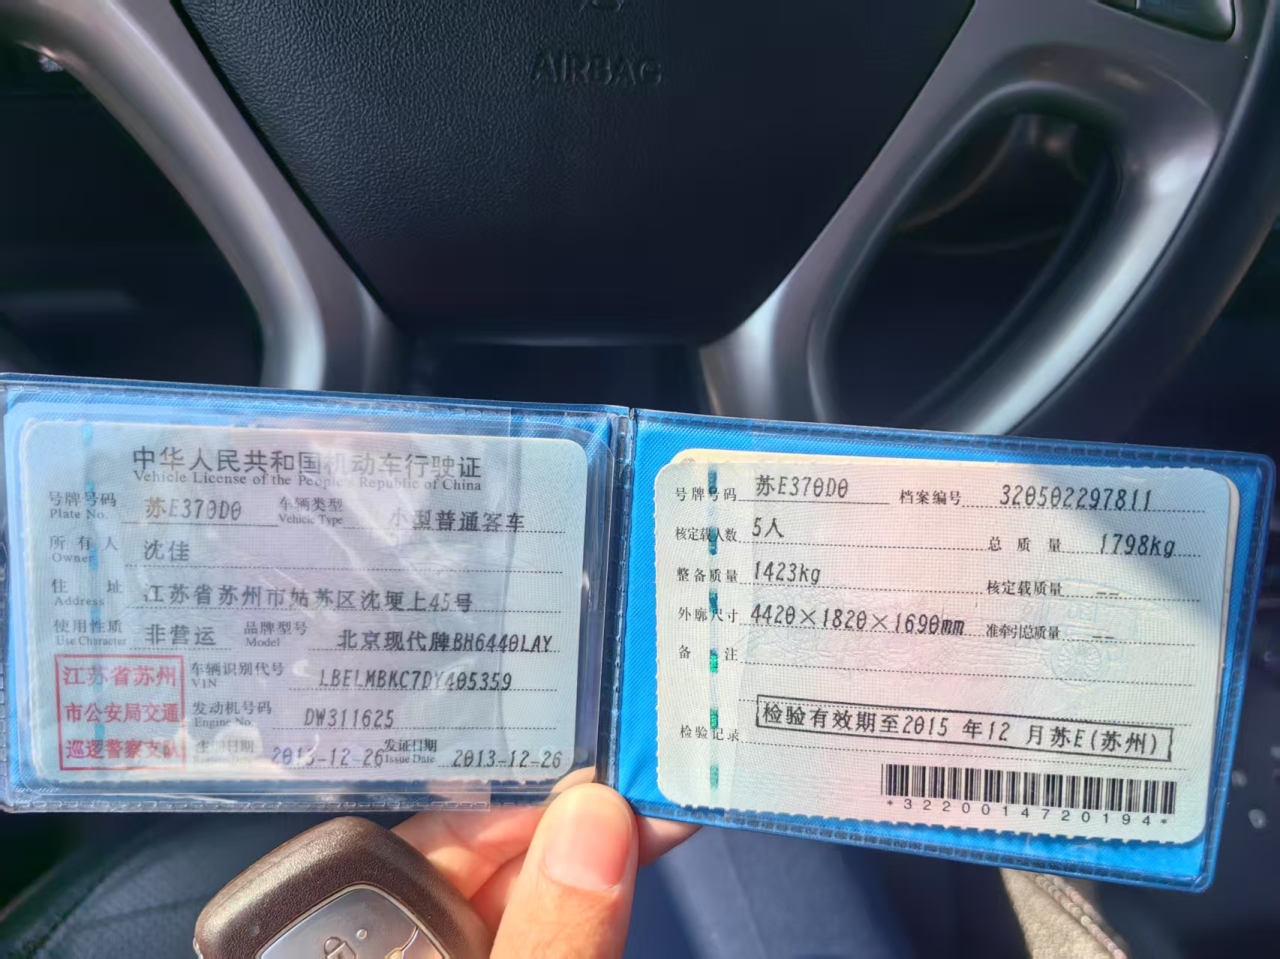 AIRBAG
中华人民共和国机动车行驶证
Vehicle License of the People's Republic of China
号牌号码 苏E370D0 车辆类型 小型普通客车
Plate No. Vehicle Type
所有人 沈佳
Owner
住址 江苏省苏州市姑苏区沈埂上45号
Address
使用性质 非营运 品牌型号 北京现代牌BH6440LAY
Use Character Model
江苏省苏州
市公安局交通
巡逻警察支队
车辆识别代号 LBELMBKC7DY405359
VIN
发动机号码 DW311625
Engine No.
注册日期 2013-12-26 发证日期 2013-12-26
Issue Date
号牌号码 苏E370D0 档案编号 320502297811
核定载人数 5人 总质量 1798kg
整备质量 1423kg 核定载质量 --
外廓尺寸 4420×1820×1690mm 准牵引总质量 --
备注
检验记录 检验有效期至2015年12月苏E(苏州)
*3220014720194*